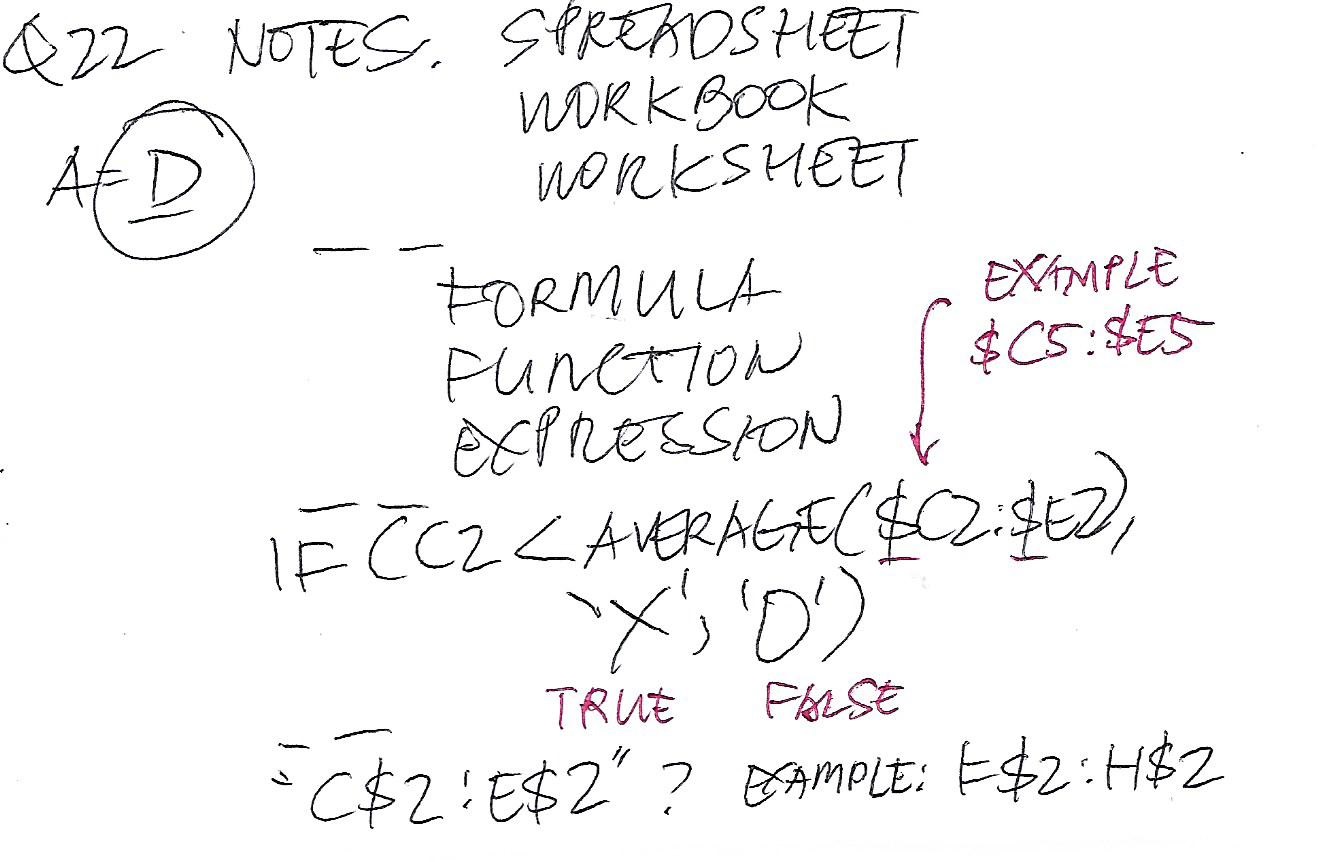 Q22 NOTES. SPREADSHEET
WORKBOOK
A=D WORKSHEET
FORMULA
FUNCTION
EXPRESSION
EXAMPLE
$C5:$E5
IF (C2 < AVERAGE($C2:$E2),
'X', 'O')
TRUE FALSE
"C$2:E$2" ? EXAMPLE: F$2:H$2